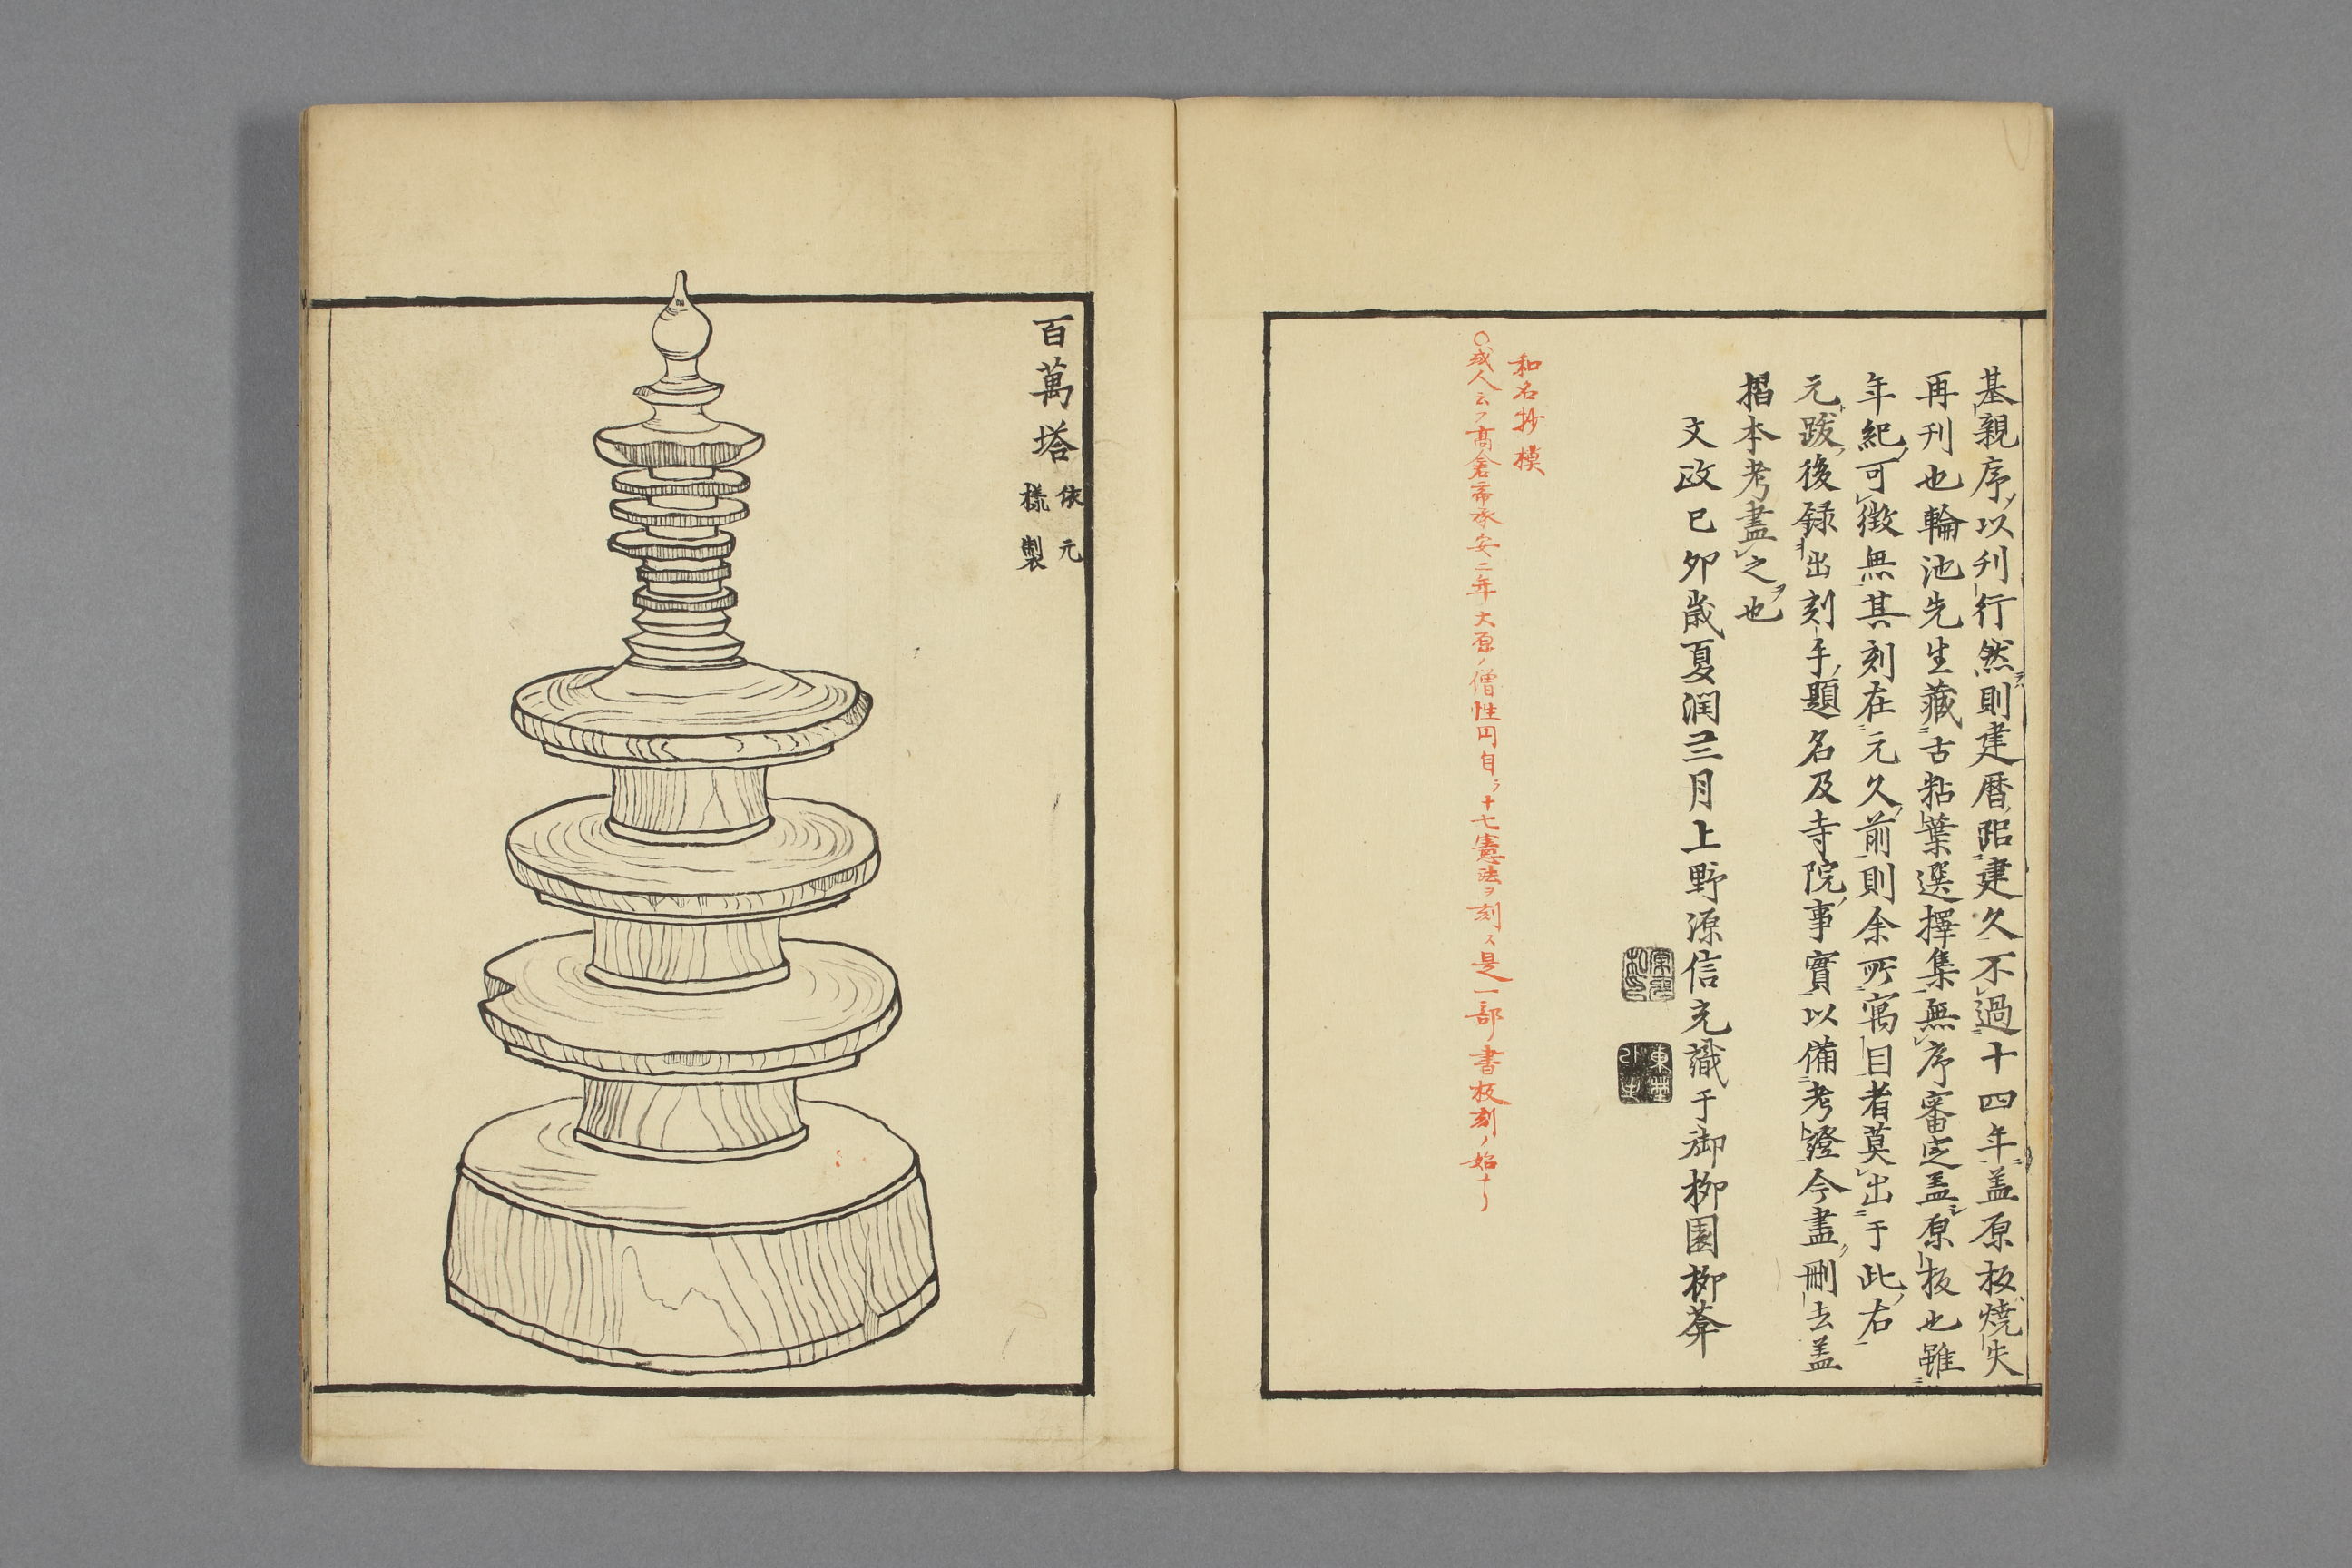 基親序以刋行然則建暦距建久不過十四年盖原板焼失
再刋也輪池先生藏古粘葉選擇集無序審定盖原板也雖
年紀可徴無其刻在元久前則余所寓目者莫出于此右
元跋後録出刻手題名及寺院事實以備考證今盡刪去盖
摺本考盡之也
文政己夘歳夏潤三月上野源信充識于御栁園栁葊
和名抄模
○或人云フ髙倉帝承安二年大原ノ僧性円自ラ十七憲法ヲ刻ス是一部ノ書板刻ノ始ナリ
百萬塔
依元
樣製